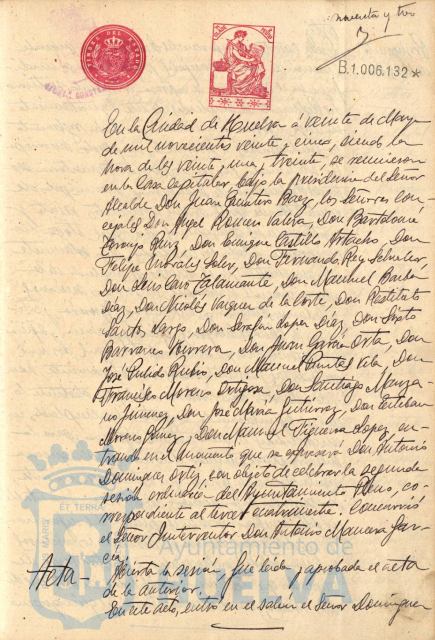 noventa y tres
B.1.006.132*
TIMBRE DEL ESTADO
En la Ciudad de Huelva á veinte de Mayo
de mil novecientos veinte y cinco, siendo la
hora de las veinte, una, treinta, se reunieron
en la Casa Capitular, bajo la presidencia del Señor
Alcalde Don Juan Quintero Baez, los Señores Con-
cejales Don Angel Roman Valera, Don Bartolomé
Naranjo Ruiz, Don Enrique Castillo, Don
Felipe Morales Soler, Don Fernando Rey, Don
Don Luis Caro Talamante, Don Manuel
Diaz, Don Nicolás Vazquez de la Corte, Don Restituto
Santos Largo, Don Serafin Lopez Diaz, Don Sixto
Don Juan Garcia Orta, Don
José Pulido Rubio, Don Manuel Puntas Vela, Don
Francisco Moreno Ortega, Don Santiago Manza-
no Jimenez, Don José Maria Gutiérrez, Don Esteban
Moreno Gomez, y Don Manuel Figueroa Lopez, en-
trando en el momento que se expresará Don Antonio
Dominguez Ortiz, con objeto de celebrar la segunda
sesión ordinaria del Ayuntamiento Pleno, co-
rrespondiente al tercer cuatrimestre. Concurrió
el Señor Interventor Don Antonio Mancera Gar-
cia.
Acta – Abierta la sesión, fué leida y aprobada el acta
de la anterior.
En este acto, entró en el salón el Señor Dominguez
ET TERRA
Ayuntamiento de
HUELVA